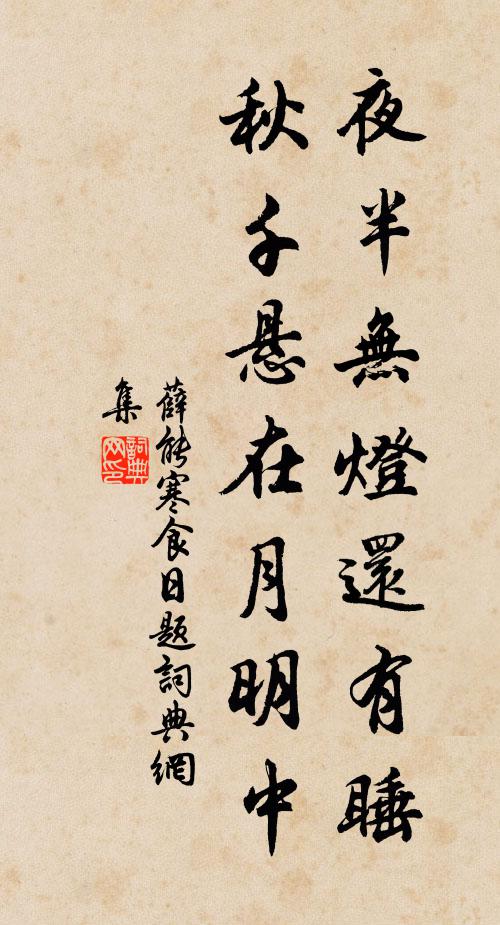 夜半無燈還有睡
秋千悬在月明中
薛能寒食日題詞典網
集
詞典
网印